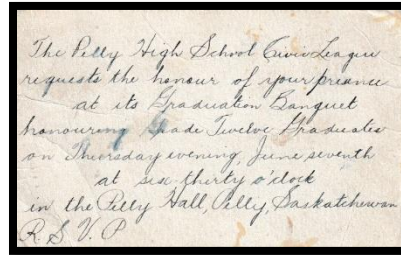 The Pelly High School Civic League
requests the honour of your presence
at its Graduation Banquet
honouring Grade Twelve Graduates
on Thursday evening, June seventh
at six-thirty o'clock
in the Pelly Hall, Pelly, Saskatchewan
R.S.V.P